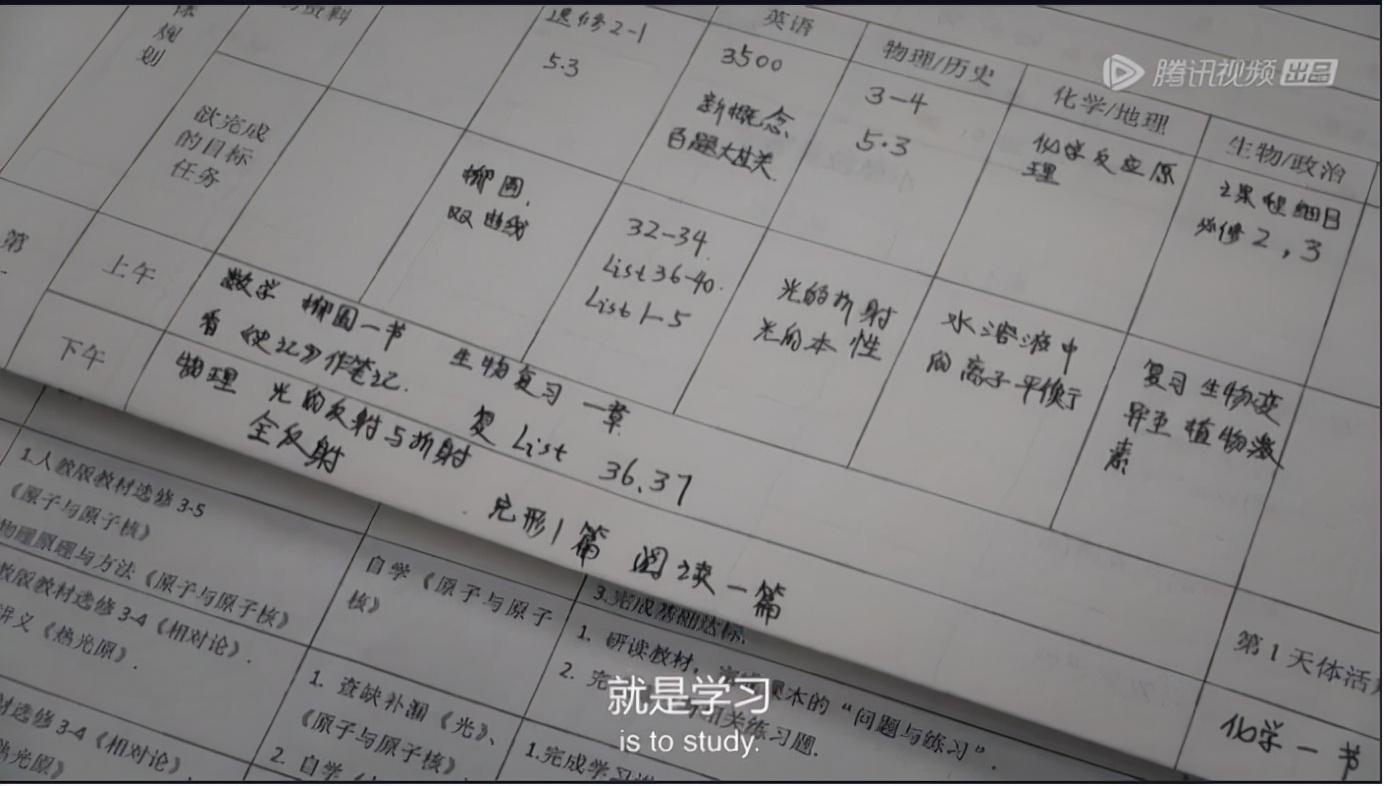 选修2-1
5.3
英语
3500
新概念
百题大过关
物理/历史
3-4
5.3
化学/地理
化学反应原
理
生物/政治
课程细目
必修2,3
腾讯视频 出品
规
划
欲完成
的目标
任务
椭圆,
双曲线
32-34.
List 36-40.
List 1-5
光的折射
光的本性
水溶液中
的离子平衡
复习生物变
异至植物激
素
第
上午
数学 椭圆一节 生物复习 一章
看《史记》作笔记. 复 List 36,37
下午
物理 光的反射与折射
全反射
完形1篇 阅读一篇
第1天体活
化学一节
1.人教版教材选修3-5
《原子与原子核》
物理原理与方法《原子与原子核》
教版教材选修3-4《相对论》.
讲义《热光原》.
材选修3-4《相对论》.
热光原》
自学《原子与原子
核》
1. 查缺补漏《光》、
《原子与原子核》.
2. 自学
3.完成基础达标.
1. 研读教材,
课本的“问题与练习”.
2. 完
相关练习题.
1.完成学习
就是学习
is to study.